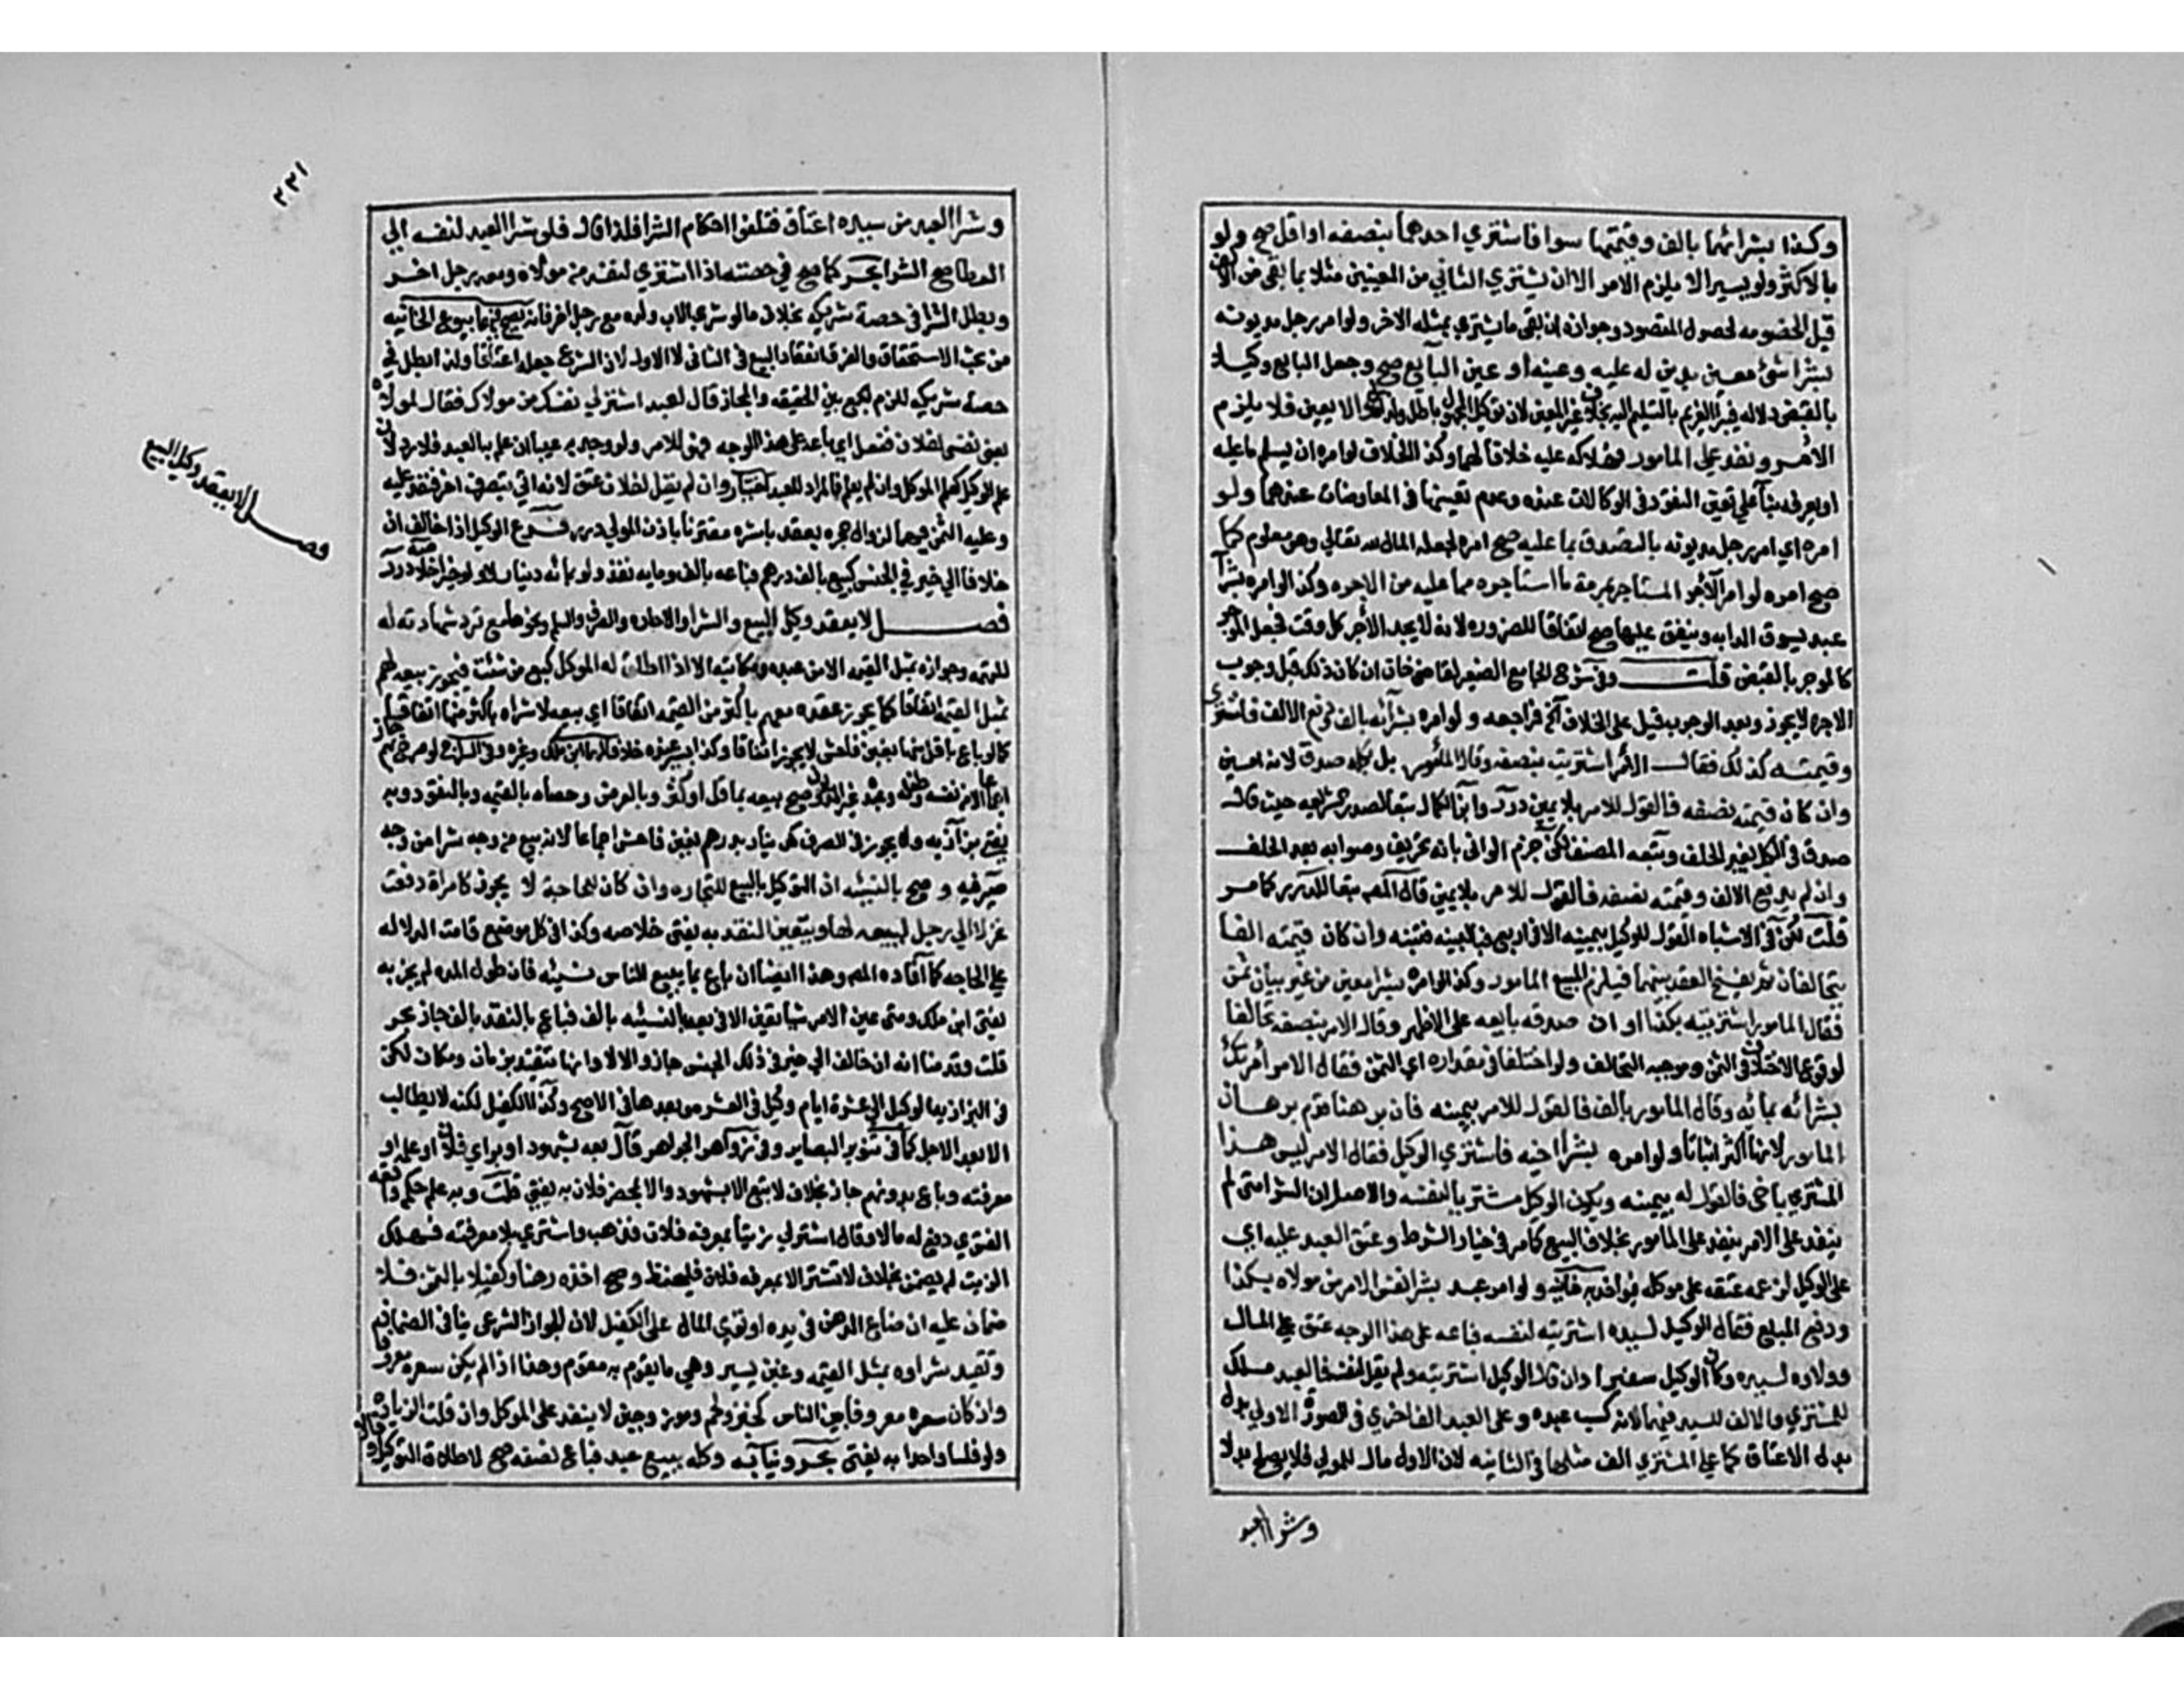 وكذا بشرائهما بالف وقيمتهما سوا فاشتري احدهما بنصفه او اقل صح ولو
بالاكثر ولو يسيرا لا يلزم الامر الا ان يشتري الثاني من المعينين مثلا بما بقي من الالف
قبل الخصومه لحصول المقصود وجوازه ان بقي ما يشتري بمثله الاخر ولو امر رجل مديونه
بشرا شئ معين بدين له عليه وعينه او عين البايع صح وجعل البايع وكيلا
بالقبض دلاله فيبرا الغريم بالتسليم اليه بخلاف غير المعين لان توكيل المجهول باطل ولذا والا يعين فلا يلزم
الامر ونفذ علي المامور فهلاكه عليه خلافا لهما وكذا الخلاف لو امره ان يسلم ما عليه
او يصرفه بنآ علي تعين النقود في الوكالات عنده وعدم تعينها في المعاوضات عندهما ولو
امره اي امر رجل مديونه بالتصدق بما عليه صح امره لجعله المال لله تعالي وهو معلوم كما
صح امره لو امر الآجر المستاجر بمرمة ما استاجره مما عليه من الاجره وكذا لو امره بشرآ
عبد يسوق الدابه وينفق عليها صح اتفاقا للضروره لانه لا يجد الآجر كل وقت فجعل الموجر
كالموجر بالقبض قلت وفي شرح الجامع الصغير لقاضي خان ان كان ذلك قبل وجوب
الاجره لا يجوز وبعد الوجوب قيل علي الخلاف الخ فراجعه ولو امره بشرآئه بالف ودفع الالف فاشتري
وقيمته كذلك فقال الآمر اشتريت بنصفه وقال المأمور بل بكله صدق لانه امين
وان كان قيمته نصفه فالقول للامر بلا يمين درر وابن الكمال تبعا لصدر الشريعه حيث قال
صدق في الكل بغير الحلف وتبعه المصنف لكن جزم الواني بانه تحريف وصوابه بعد الحلف
وان لم يدفع الالف وقيمته نصفه فالقول للامر بلا يمين قاله المص تبعا للدرر كما مر
قلت لكن في الاشباه القول للوكيل بيمينه الا في اربع فبالبينه فتنبه وان كان قيمته الفا
يتحالفان ثم يفسخ العقد بينهما فيلزم المبيع المامور وكذا لو امره بشرا معين من غير بيان ثمن
فقال المامور اشتريته بكذا وان صدقه بايعه علي الاظهر وقال الامر بنصفه تحالفا
لوقوع الاختلاف في الثمن وموجبه التحالف ولو اختلفا في مقداره اي الثمن فقال الامر امرتك
بشرائه بمائه وقال المامور بالف فالقول للامر بيمينه فان برهنا قدم برهان
المامور لانها اكثر اثباتا ولو امره بشرا اخيه فاشتري الوكيل فقال الامر ليس هذا
المشتري باخي فالقول له بيمينه ويكون الوكيل مشتريا لنفسه والاصل ان الشرا متي لم
ينفذ علي الامر ينفذ علي المامور بخلاف البيع كما مر في خيار الشرط وعتق العبد عليه اي
علي الوكيل لزعمه عتقه علي موكله فيواخذ به خانيه ولو امر عبد بشرا نفس الامر من مولاه بكذا
ودفع المبلغ فقال الوكيل لسيده اشتريته لنفسه فباعه علي هذا الوجه عتق علي المال
وولاوه لسيده وكان الوكيل سفيرا وان قال الوكيل اشتريته ولم يقل لنفسه فالعبد ملك
للمشتري والالف للسيد فيهما لانه كسب عبده وعلي العبد الف اخري في الصورة الاولي بدل
بدل الاعتاق كما علي المشتري الف مثلها في الثانيه لان الاول مال المولي فلا يصلح بدلا
وشرا العبد
٢٢١
وشرا العبد من سيده اعتاق فتلغوا احكام الشرا فلذا قال فلو شرا العبد لنفسه الي
العطا صح الشرا بحر كما صح في حصته اذا اشتري لنفسه من مولاه ومعه رجل اخر
وبطل الشرا في حصة شريكه بخلاف ما لو شري الاب ولده مع رجل اخر فانه يصح فيهما بيوع الخانيه
من بحث الاستحقاق والفرق انعقاد البيع في الثاني لا الاول لان الشرع جعله اعتاقا ولذا بطل في
حصة شريكه للزوم الجمع بين الحقيقه والمجاز قال لعبد اشتر لي نفسك من مولاك فقال لمولاه
بعني نفسي لفلان ففعل اي باعه علي هذا الوجه فهو للامر ولو وجد به عيبا ان علم به العبد فلا رد لان
علم الوكيل كعلم الموكل وان لم يعلم فالرد للعبد اختيار وان لم يقل لفلان عتق لانه اتي بتصرف اخر فنفذ عليه
وعليه الثمن فيهما لزوال حجره بعقد باشره مقترنا باذن المولي درر فرع الوكيل اذا خالف ان
خلافا الي خير في الجنس كبيع بالف درهم فباعه بالف ومايه نفذ ولو بمائه دينار لا ولو خيرا خلاصه درر
فصل لا يعقد وكيل البيع والشرا والاجاره والصرف والسلم ونحوها مع من ترد شهادته له
للتهمه وجوزاه بمثل القيمه الا من عبده ومكاتبه الا اذا اطلق له الموكل كبيع من شئت فيجوز بيعه لهم
بمثل القيمه اتفاقا كما يجوز عقده معهم باكثر من القيمه اتفاقا اي بيعه لا شراه باكثر منها اتفاقا
كما لو باع باقل منها بغبن فاحش لا يجوز اتفاقا وكذا بيسير عنده خلافا لهما ابن ملك وغيره وفي السراج لو صرح بهم جاز
اجماعا الا من نفسه وطفله وعبده غير المديون وصح بيعه بما قل او كثر وبالعرض وخصاه بالقيمه وبالنقود وبه
يفتي بزازيه ولا يجوز في الصرف كدينار بدرهم بغبن فاحش اجماعا لانه بيع من وجه شرا من وجه
صيرفيه وصح بالنسيئه ان التوكيل بالبيع للتجاره وان كان للحاجة لا يجوز كامراة دفعت
غزلا الي رجل ليبيعه لها ويتعين النقد به يفتي خلاصه وكذا في كل موضع قامت الدلاله
علي الحاجه كما افاده المص وهذا ايضا ان باع بما يبيع الناس نسيئه فان طول المده لم يجز به
يفتي ابن ملك ومتي عين الامر شيا تعين الا في بعه بالنسيئه بالف فباع بالنقد بالف جاز بحر
قلت وقدمنا انه ان خالف الي خير في ذلك الجنس جاز والا لا وانها تتقيد بزمان ومكان لكن
في البزازيه الوكيل الي عشرة ايام وكيل في العشره وبعدها في الاصح وكذا الكفيل لكنه لا يطالب
الا بعد الاجل كما في تنوير البصاير وفي زواهر الجواهر قال بعه بشهود او براي فلان او علمه او
معرفته وباع بدونهم جاز بخلاف لا تبع الا بشهود والا بمحضر فلان به يفتي قلت وبه علم حكم واقعه
الفتوي دفع له مالا وقال اشتر لي زيتا بمعرفه فلان فذهب واشتري بلا معرفته فهلك
الزيت لم يضمن بخلاف لا تشتر الا بمعرفه فلان فليحفظ وصح اخذه رهنا وكفيلا بالثمن فلا
ضمان عليه ان ضاع الرهن في يده او توي المال علي الكفيل لان الجواز الشرعي ينافي الضمان
وتقيد شراوه بمثل القيمه وغبن يسير وهي ما يقوم به مقوم وهذا اذا لم يكن سعره معروفا
وان كان سعره معروفا بين الناس كخبز ولحم وموز وجبن لا ينفذ علي الموكل وان قلت الزياده
ولو فلسا واحدا به يفتي بحر وبنايه وكله ببيع عبد فباع نصفه صح لاطلاق التوكيل
فصل لا يعقد وكيل البيع